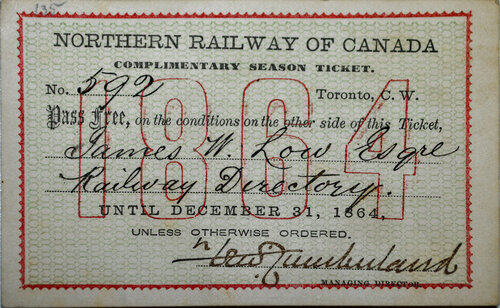 135
NORTHERN RAILWAY OF CANADA
COMPLIMENTARY SEASON TICKET.
No. 592 Toronto, C. W.
Pass Free, on the conditions on the other side of this Ticket,
1864
James W. Low Esqre
Railway Directory.
UNTIL DECEMBER 31, 1864,
UNLESS OTHERWISE ORDERED.
Fred Cumberland
MANAGING DIRECTOR.